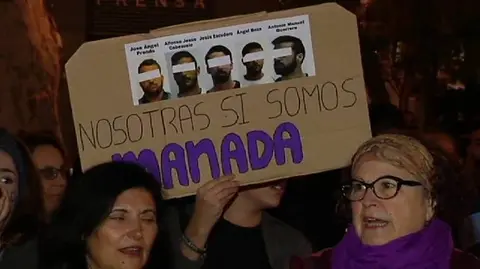 PRENSA
José Ángel Prenda
Alfonso Jesús Cabezuelo
Jesús Escudero
Ángel Boza
Antonio Manuel Guerrero
NOSOTRAS SI SOMOS
MANADA